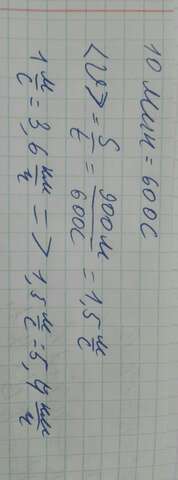 10 мин = 600с
<v> = S/t = 900м/600с = 1,5 м/с
1 м/с = 3,6 км/ч => 1,5 м/с = 5,4 км/ч